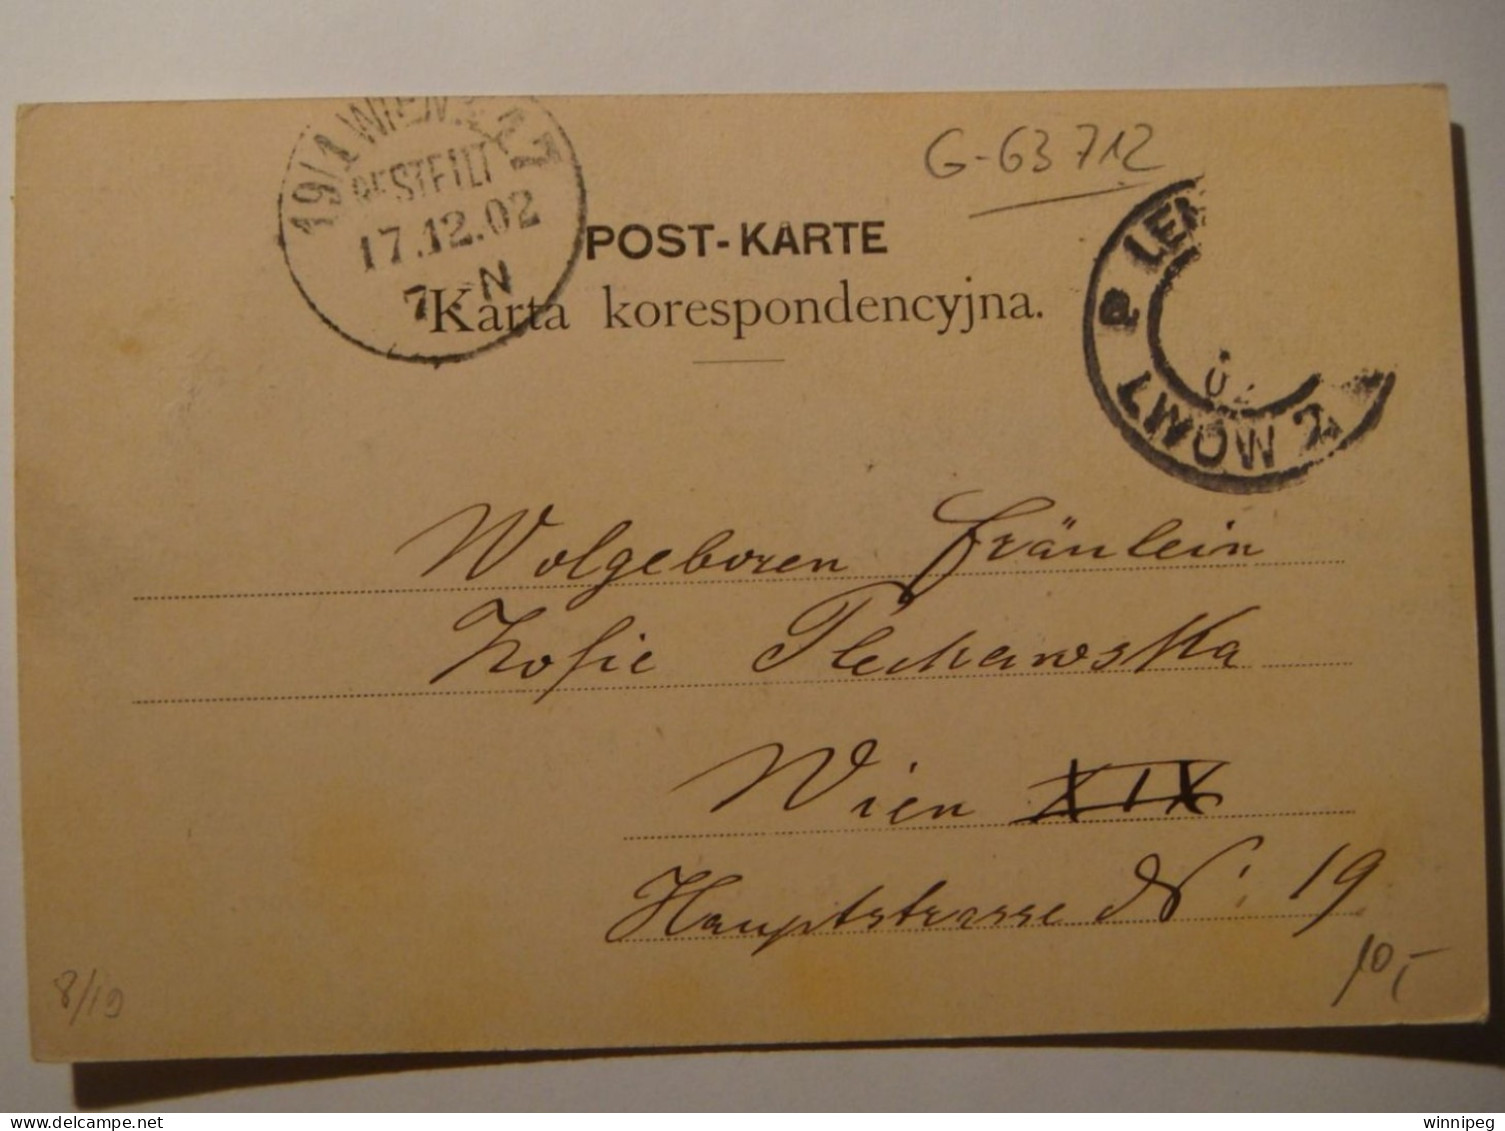 G-63712
19/1 WIEN
BESTELLT
17.12.02
7 N
POST-KARTE
Karta korespondencyjna.
LEM
LWÓW 2
02
Wolgeboren Fräulein
Zofie
Wien XIX
Hauptstrasse No 19
10,-
8/19
winnipeg